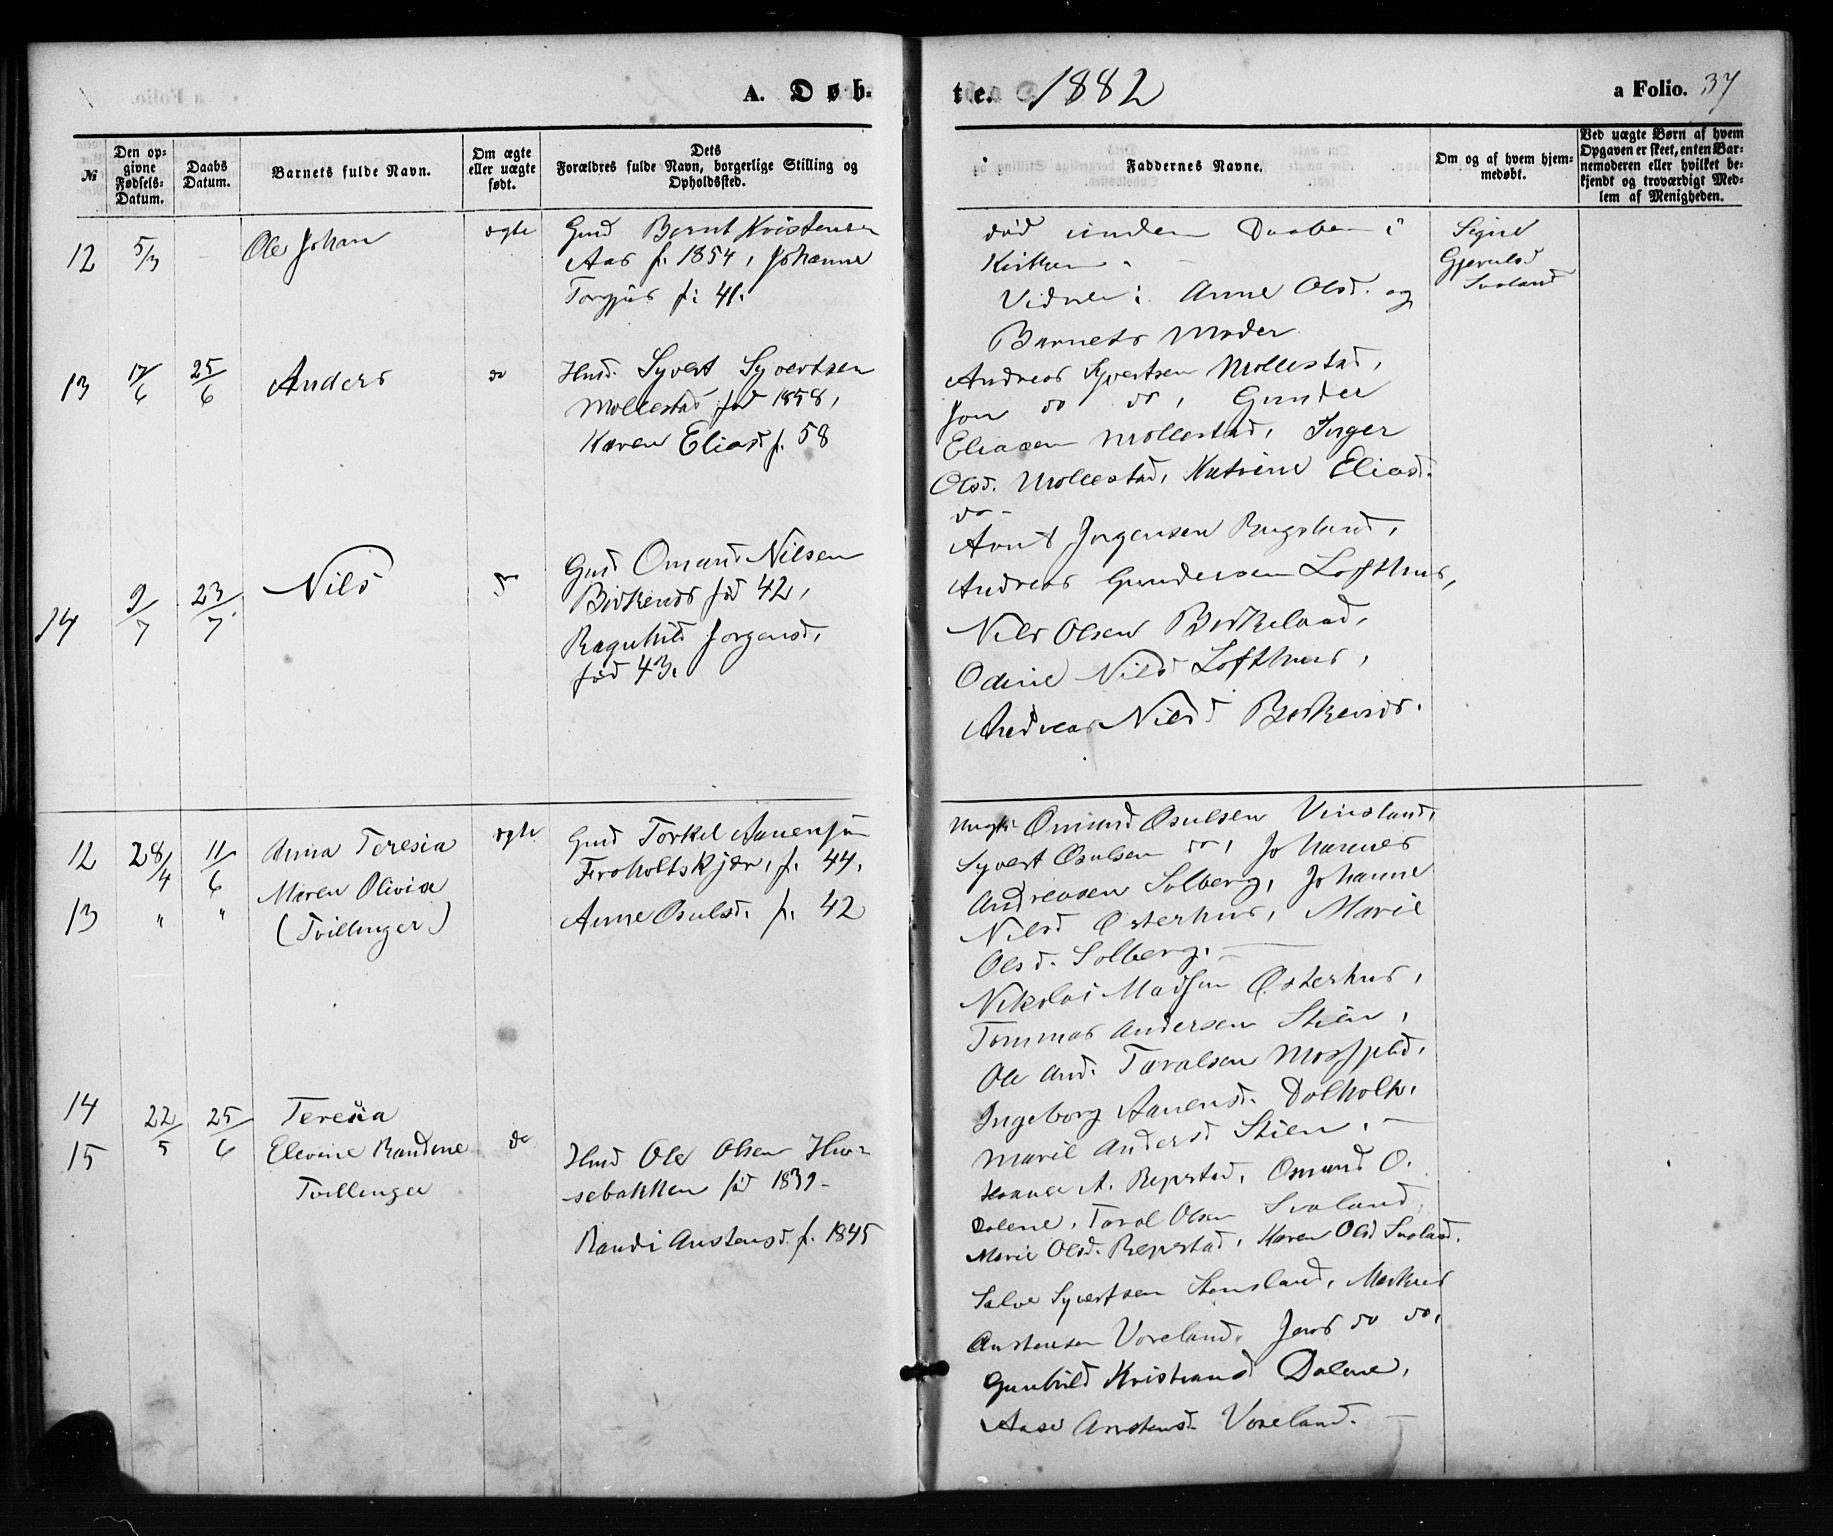 A. Døb-
te. 1882
a Folio. 37
№
Den op-
givne
Fødsels-
Datum.
Daabs
Datum.
Barnets fulde Navn.
Om ægte
eller uægte
født.
Dets
Forældres fulde Navn, borgerlige Stilling og
Opholdssted.
Faddernes Navne.
Om og af hvem hjem-
medøbt.
Ved uægte Børn af hvem
Opgaven er skeet, enten Bar-
nemoderen eller hvilket be-
kjendt og troværdigt Med-
lem af Menigheden.
12 5/3 Ole Johan ægte
Gmd Bernt Kristensen
Aas f. 1854, Johanne
Torgjus f: 41.
død under Daaben i
Kirken.
Vidner: Anne Olsd. og
Barnets Moder
Signe
Gjerulsd
Svaland
13 17/6 25/6 Anders do
Husd. Syvert Syvertsen
Mollestad fød 1858,
Karen Eliasd f. 58
Andreas Syvertsen Mollestad,
Jon do do, Gunder
Eliasen Mollestad, Inger
Olsd. Mollestad, Katrine Eliasd.
do -
14 9/7 23/7 Nils do
Gmd Omund Nilsen
Birkenes fød 42,
Ragnhild Jorgensd,
fød 43.
Arnt Jorgensen Rugsland,
Andreas Gundersen Lofthus,
Nils Olsen Birkeland,
Odine Nilsd Lofthus,
Andreas Nilsd Birkenes.
12 28/4 11/6 Anna Teresia ægte
13 " " Maren Olivia
(Tvillinger)
Gmd Torkel Aanensen
Froholtskjær, f. 44,
Anne Osulsd. f. 42
Ungk: Omund Osulsen Vinsland,
Syvert Osulsen do, Johannes
Andreasen Solberg, Johanne
Nilsd Østerhus, Marie
Olsd. Solberg. —
Nikolai Madsen Østerhus,
Tommas Andersen Stien,
Ole And. Taralsen Mosfjeld,
Ingeborg Aanensd. Dolholt,
Marie Andersd Stien. —
14 22/5 25/6 Teresia
15 Elevine Randine do
Tvillinger
Husd Ole Olsen Hu-
sebakken fød 1839 -
Randi Anstensd. f. 1845
A. Repstad, Omund O.
Dolene, Tarol Olsen Svaland,
Marie Olsd. Repstad, Karen Olsd Svaland.
Salve Syvertsen Stensland, Markus
Anstensen Voreland, Jens do do,
Gunhild Kristiansd Dolene,
Aase Anstensd. Voreland. —